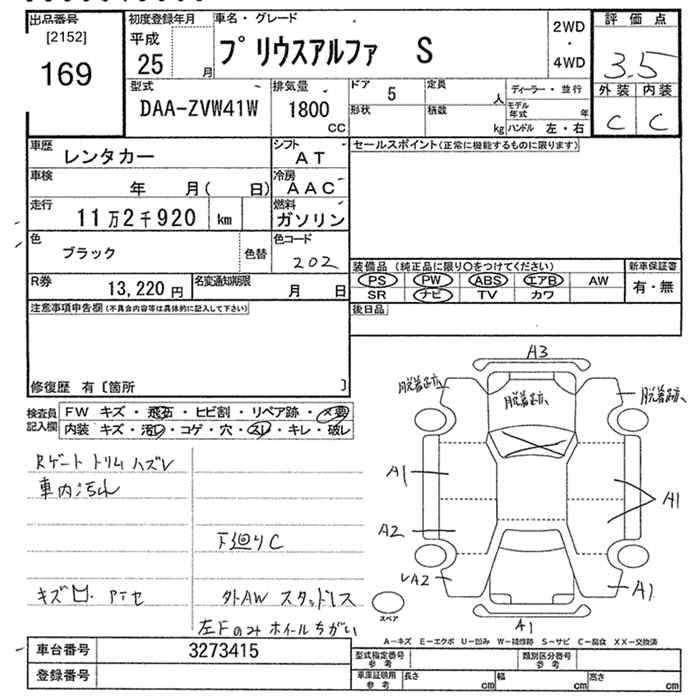 出品番号
[2152]
169
初度登録年月
平成
25
月
車名・グレード
プリウスアルファ S
2WD
・
4WD
評価点
3.5
外装 内装
C C
型式
DAA-ZVW41W
排気量
1800
CC
ドア
5
定員
人
形状
積数
kg
ディーラー・並行
モデル年式
年
ハンドル 左・右
車歴
レンタカー
シフト
AT
セールスポイント(正常に機能するものに限ります)
車検
年 月( 日)
冷房
AAC
走行
11万2千920 km
燃料
ガソリン
色
ブラック
色替
色コード
202
装備品 (純正品に限り○をつけてください)
PS PW ABS エアB AW
SR ナビ TV カワ
新車保証書
有・無
R券
13,220 円
名変通知期限
月 日
後日品
注意事項申告欄(不具合内容等は具体的に記入して下さい)
修復歴 有 [箇所 ]
検査員
記入欄
FW キズ・飛石・ヒビ割・リペア跡・×要
内装 キズ・汚レ・コゲ・穴・スレ・キレ・破レ
Rゲートトリムハズレ
車内汚れ
下廻りC
外AW スタッドレス
左Fのみホイールちがい
A3
脱着跡
脱着跡
脱着跡
A1
A1
A2
A2
A1
A1
スペア
A-キズ E-エクボ U-凹み W-補修跡 S-サビ C-腐食 XX-交換済
車台番号
3273415
登録番号
型式指定番号
参考
類別区分番号
参考
車庫証明用
参考
長さ
cm
幅
cm
高さ
cm